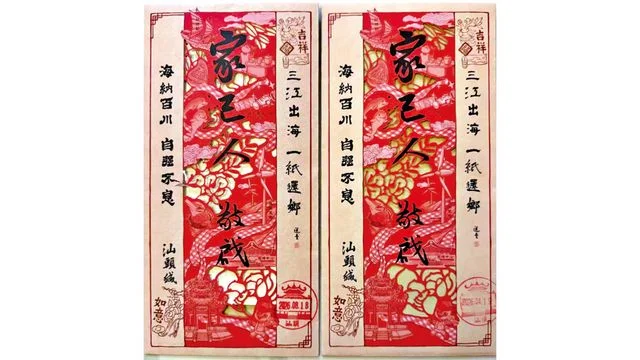 吉祥
三江出海 一紙還鄉
家己人 敬啟
海納百川 自強不息
汕頭緘
如意
汕頭
吉祥
三江出海 一紙還鄉
家己人 敬啟
海納百川 自強不息
汕頭緘
如意